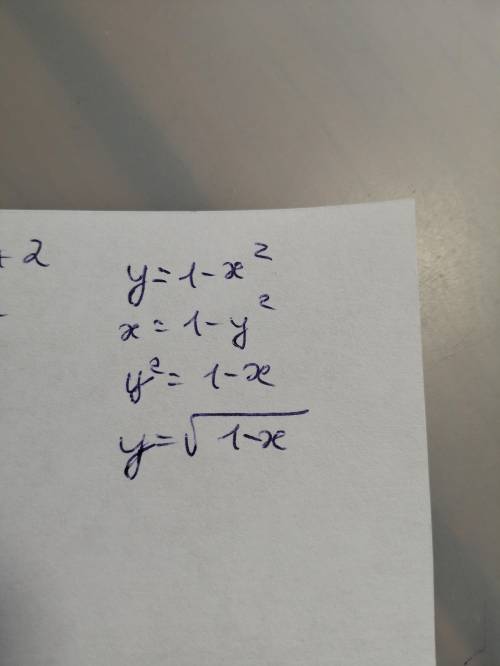 + 2
y = 1 - x²
x = 1 - y²
y² = 1 - x
y = √(1 - x)